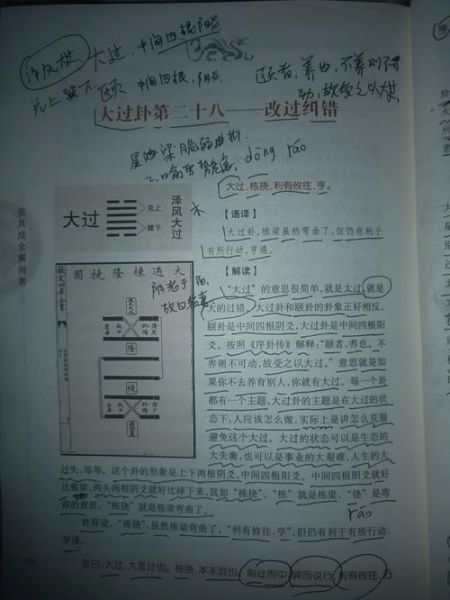 泽风大过 大过,中间四根阳爻
兑上巽下 颐 中间四根,阴爻
颐者,养也,不养则不可
动,故受之以大过
大过卦第二十八——改过纠错
屋的梁脆弱曲折
dòng ráo
大过,栋挠,利有攸往,亨。
大过
兑上
巽下
泽风大过
【语译】
大过卦,栋梁虽然弯曲了,但仍有利于
有所行动,亨通。
张其成全解周易
钦定四库全书
大过栋隆桡图
隆
桡
【解读】
“大过”的意思很简单,就是太过,就是
大的过错。大过卦和颐卦的卦象正好相反,
颐卦是中间四根阴爻,大过卦是中间四根阳
爻。按照《序卦传》解释:“颐者,养也,不
养则不可动,故受之以大过。”意思就是如
果你不去养育别人,你就有大过。每一个卦
都有一个主题,大过卦的主题是在大过的状
态下,人应该怎么做,实际上是讲怎么克服
避免这个大过。大过的状态可以是生态的
大失衡,也可以是事业的大艰难,人生的大
过失,等等。这个卦的形象是上下两根阴爻,中间四根阳爻。中间四根阳爻就好
比栋梁,两头两根阴爻就好比掉下来,犹如“栋挠”,“栋”就是栋梁,“挠”是弯
曲的意思,“栋挠”就是栋梁弯曲了。
ráo
卦辞说,“栋挠”,虽然栋梁弯曲了,“利有攸往,亨”,但仍有利于有所行动,
亨通。
彖曰:大过,大者过也。栋挠,本末弱也。刚过而中,巽而说行,利有攸往,